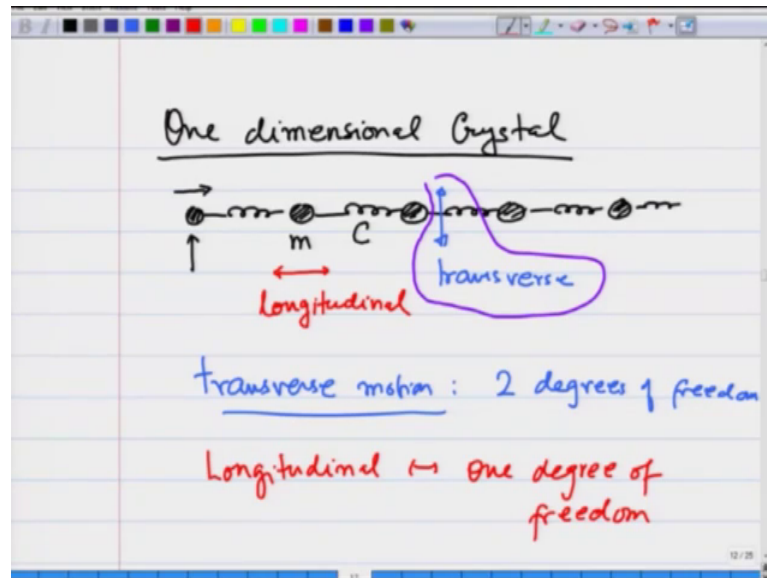 One dimensional Crystal
m C
transverse
Longitudinal
transverse motion : 2 degrees of freedom
Longitudinal ↔ One degree of
freedom
12 / 25